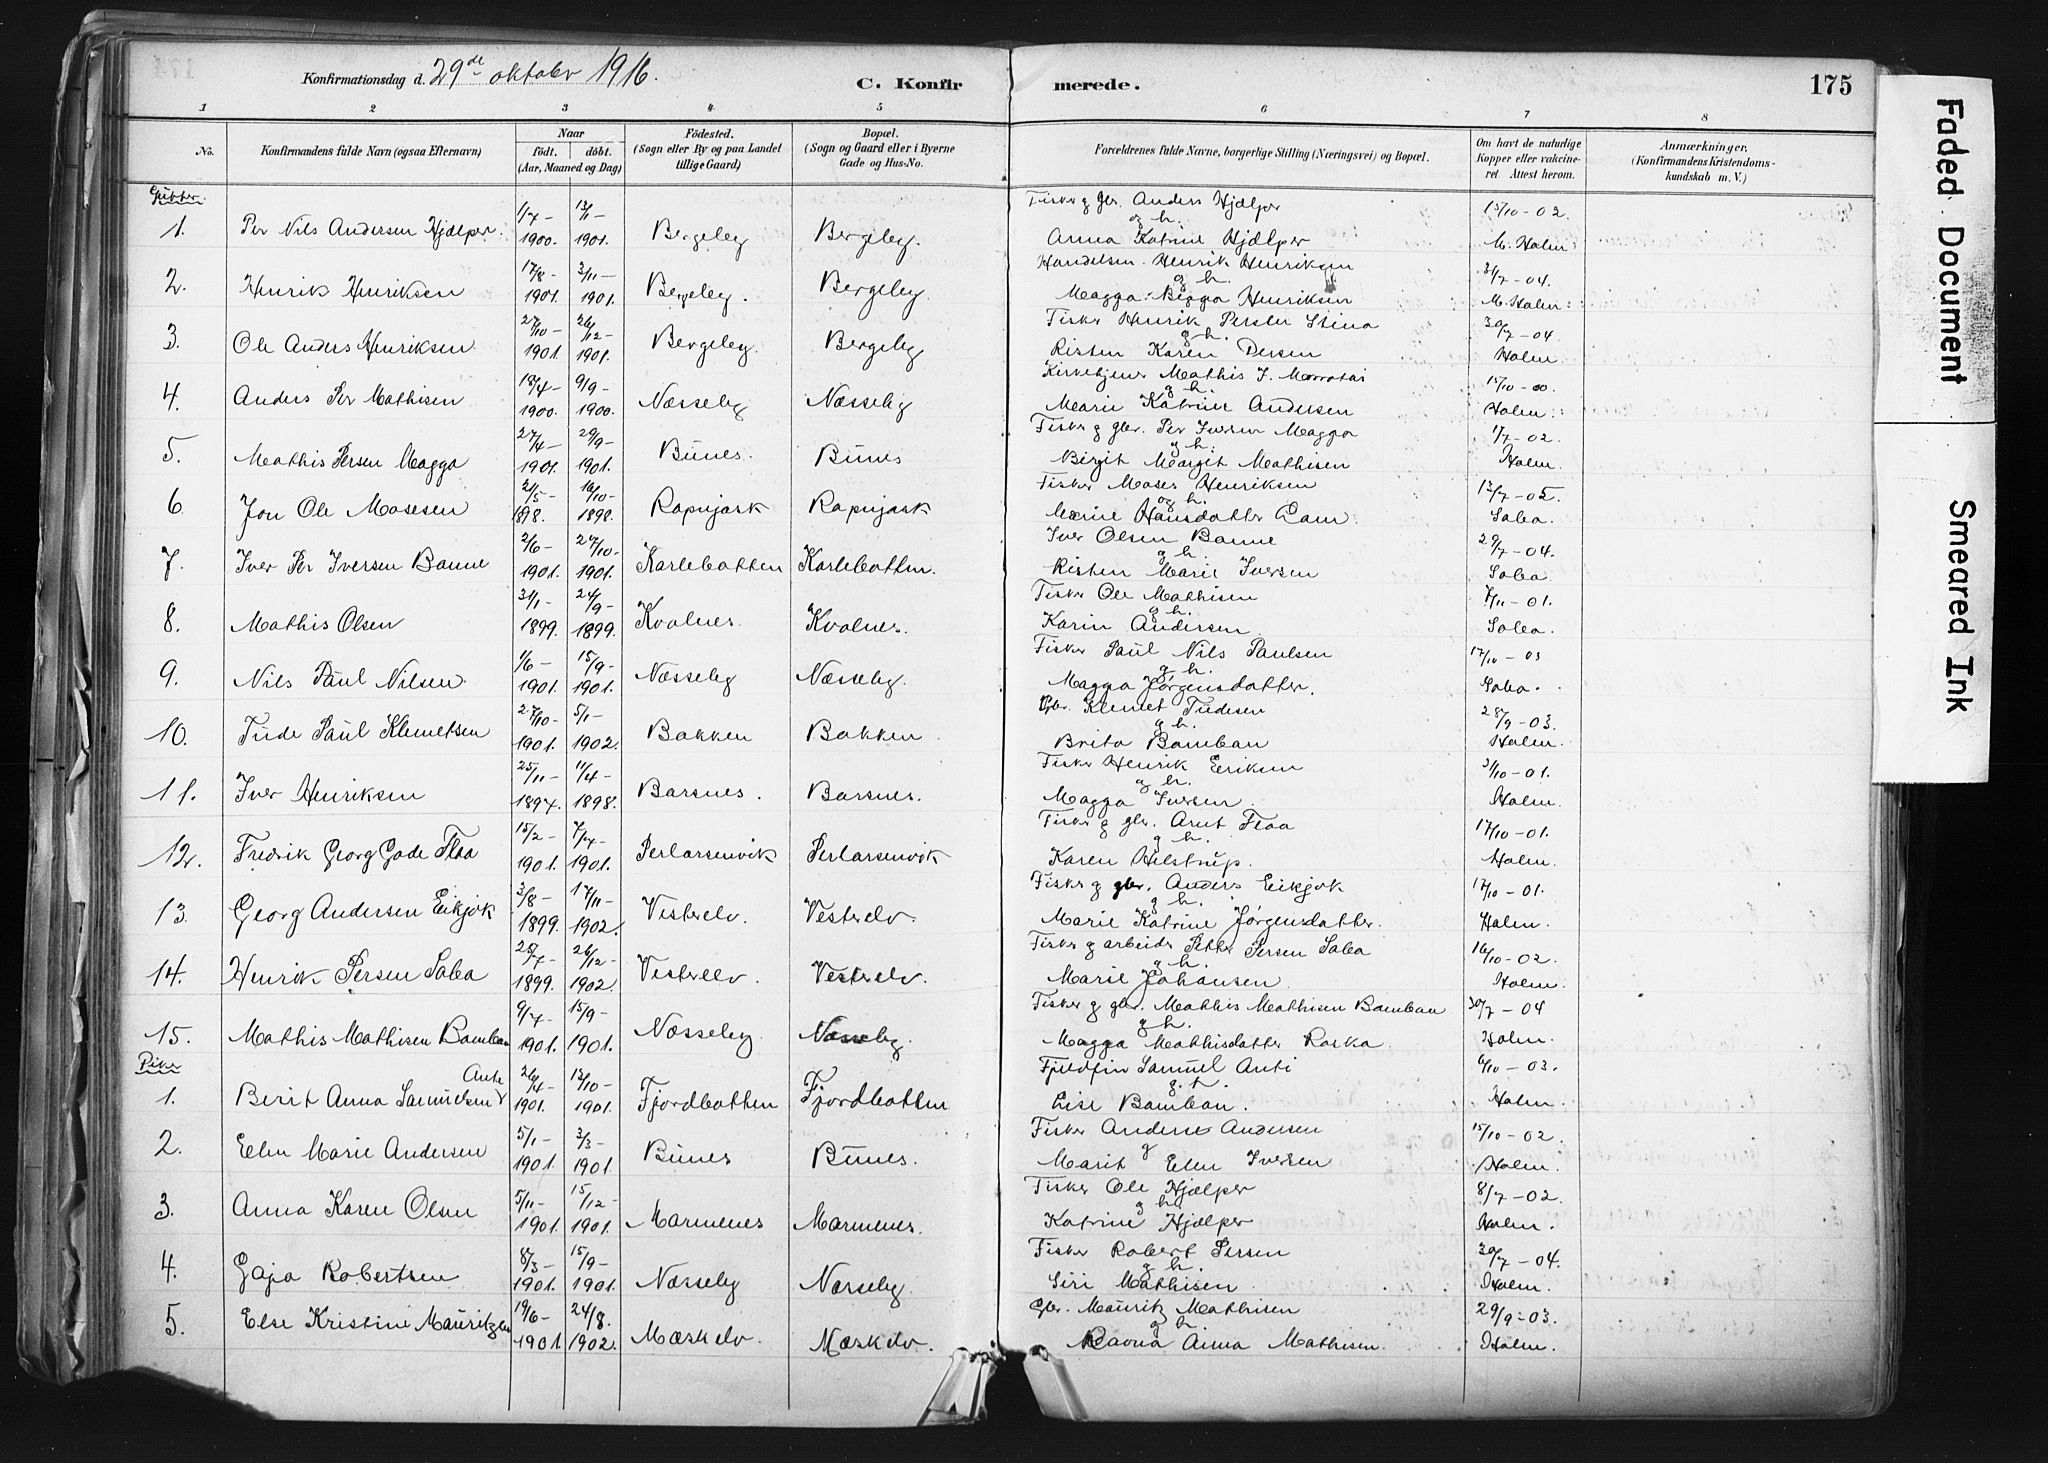 Konfirmationsdag d. 29de oktober 1916.
C. Konfirmerede.
175
1 2 3 4 5 6 7 8
No.
Konfirmandens fulde Navn (ogsaa Efternavn)
Naar
födt. döbt.
(Aar, Maaned og Dag)
Födested.
(Sogn eller By og paa Landet
tillige Gaard)
Bopæl.
(Sogn og Gaard eller i Byerne
Gade og Hus-No.
Forældrenes fulde Navne, borgerlige Stilling (Næringsvei) og Bopæl.
Om havt de naturlige
Kopper eller vakcine-
ret Attest herom.
Anmærkninger,
(Konfirmandens Kristendoms-
kundskab m. V.)
Gutter.
1. Per Nils Andersen Hjælper. 1/7- 1900. 13/11- 1901. Bergeby Bergeby. Fisker g gbr. Anders Hjælper
g h.
Anna Katrine Hjælper 15/10-02. M. Holm.
2. Henrik Henriksen 17/8- 1901. 3/11- 1901. Bergeby. Bergeby. Handelsm. Henrik Henriksen
g h.
Magga Bigga Henriksen 31/7-04. M. Holm.
3. Ole Anders Henriksen 27/10- 1901. 26/12- 1901. Bergeby. Bergeby Fisker Henrik Persen Stina
g h.
Risten Karen Persen 30/7-04. Holm.
4. Anders Per Mathisen 18/4- 1900. 9/9- 1900. Næsseby Næsseby Kirketjener Mathis J. Morrotai
g h.
Marie Katrine Andersen 15/10-00. Holm.
5. Mathis Persen Magga 27/4- 1901. 29/9- 1901. Bunes. Bunes Fisker g gbr. Per Iversen Magga
g h.
Birgit Margit Mathisen 1/7-02. Holm.
6. Jon Ole Mosesen 21/5- 1898. 16/10- 1898. Rapnjark Rapnjark Fisker Moses Henriksen
og h.
Marie Hansdatter Lam. 12/7-05. Saba.
7. Iver Per Iversen Banne 2/6- 1901. 27/10- 1901. Karlebotten Karlebotten. Iver Olsen Banne
g h.
Risten Marie Iversen 29/7-04. Saba.
8. Mathis Olsen 31/1- 1899. 24/9- 1899. Kvalnes. Kvalnes. Fisker Ole Mathisen
g h.
Karin Andersen 7/11-01. Saba.
9. Nils Paul Nilsen. 1/6- 1901. 15/9- 1901. Næsseby Næsseby. Fisker Paul Nils Paulsen
g h.
Magga Jörgensdatter. 17/10-03 Saba.
10. Tude Paul Klemetsen 27/10- 1901. 5/1- 1902. Bakken Bakken. Gbr. Klemet Tudesen
g h.
Brita Bamban 28/9-03. Holm.
11. Iver Henriksen 25/11- 1897. 11/4- 1898. Barsnes. Barsnes. Fisker Henrik Eriksen
g h.
Magga Iversen. 3/10-01. Holm.
12. Fredrik Georg Gade Flaa 15/2- 1901. 7/4- 1901. Perlarsenvik Perlarsenvik Fisker g gbr. Arnt Flaa
g h.
Karen Hilstrup. 17/10-01. Holm.
13. Georg Andersen Eikjok 3/8- 1899. 17/11- 1902. Vesterelv. Vesterelv. Fisker g gbr. Anders Eikjok
g h.
Marie Katrine Jörgensdatter. 17/10-01. Holm.
14. Henrik Persen Saba 25/7- 1899. 26/12- 1902. Vesterelv. Vesterelv. Fisker g arbeider Petter Persen Saba
g h.
Marie Johansen. 16/10-02. Holm.
15. Mathis Mathisen Bamban 9/7- 1901. 15/9- 1901. Næsseby. Næsseby. Fisker g gbr. Mathis Mathisen Bamban
g h.
Magga Mathisdatter Raska. 30/7-04 Holm.
Piker
1. Berit Anna Samuelsen Anti 26/4- 1901. 13/10- 1901. Fjordbotten Fjordbotten Fjeldfin Samuel Anti
g. h.
Lise Bamban. 6/10-03. Holm.
2. Elen Marie Andersen 5/1- 1901. 3/3- 1901. Bunes Bunes. Fisker Anders Andersen
g
Marit Elen Iversen 15/10-02. Holm.
3. Anna Karen Olsen 5/11- 1901. 15/12- 1901. Marnenes Marnenes. Fisker Ole Hjælper
g h.
Katrine Hjælper 8/7-02. Holm.
4. Gaja Robertsen 8/3- 1901. 15/9- 1901. Næsseby Næsseby. Fisker Robert Persen
g h.
Siri Mathisen 30/7-04. Holm.
5. Else Kristine Mauritzen 19/6- 1901. 24/8. 1902. Mæskelv. Mæskelv. Gbr. Mauritz Mathisen
g h.
Ravna Anna Mathisen. 29/9-03. Holm.
Faded Document
Smeared Ink